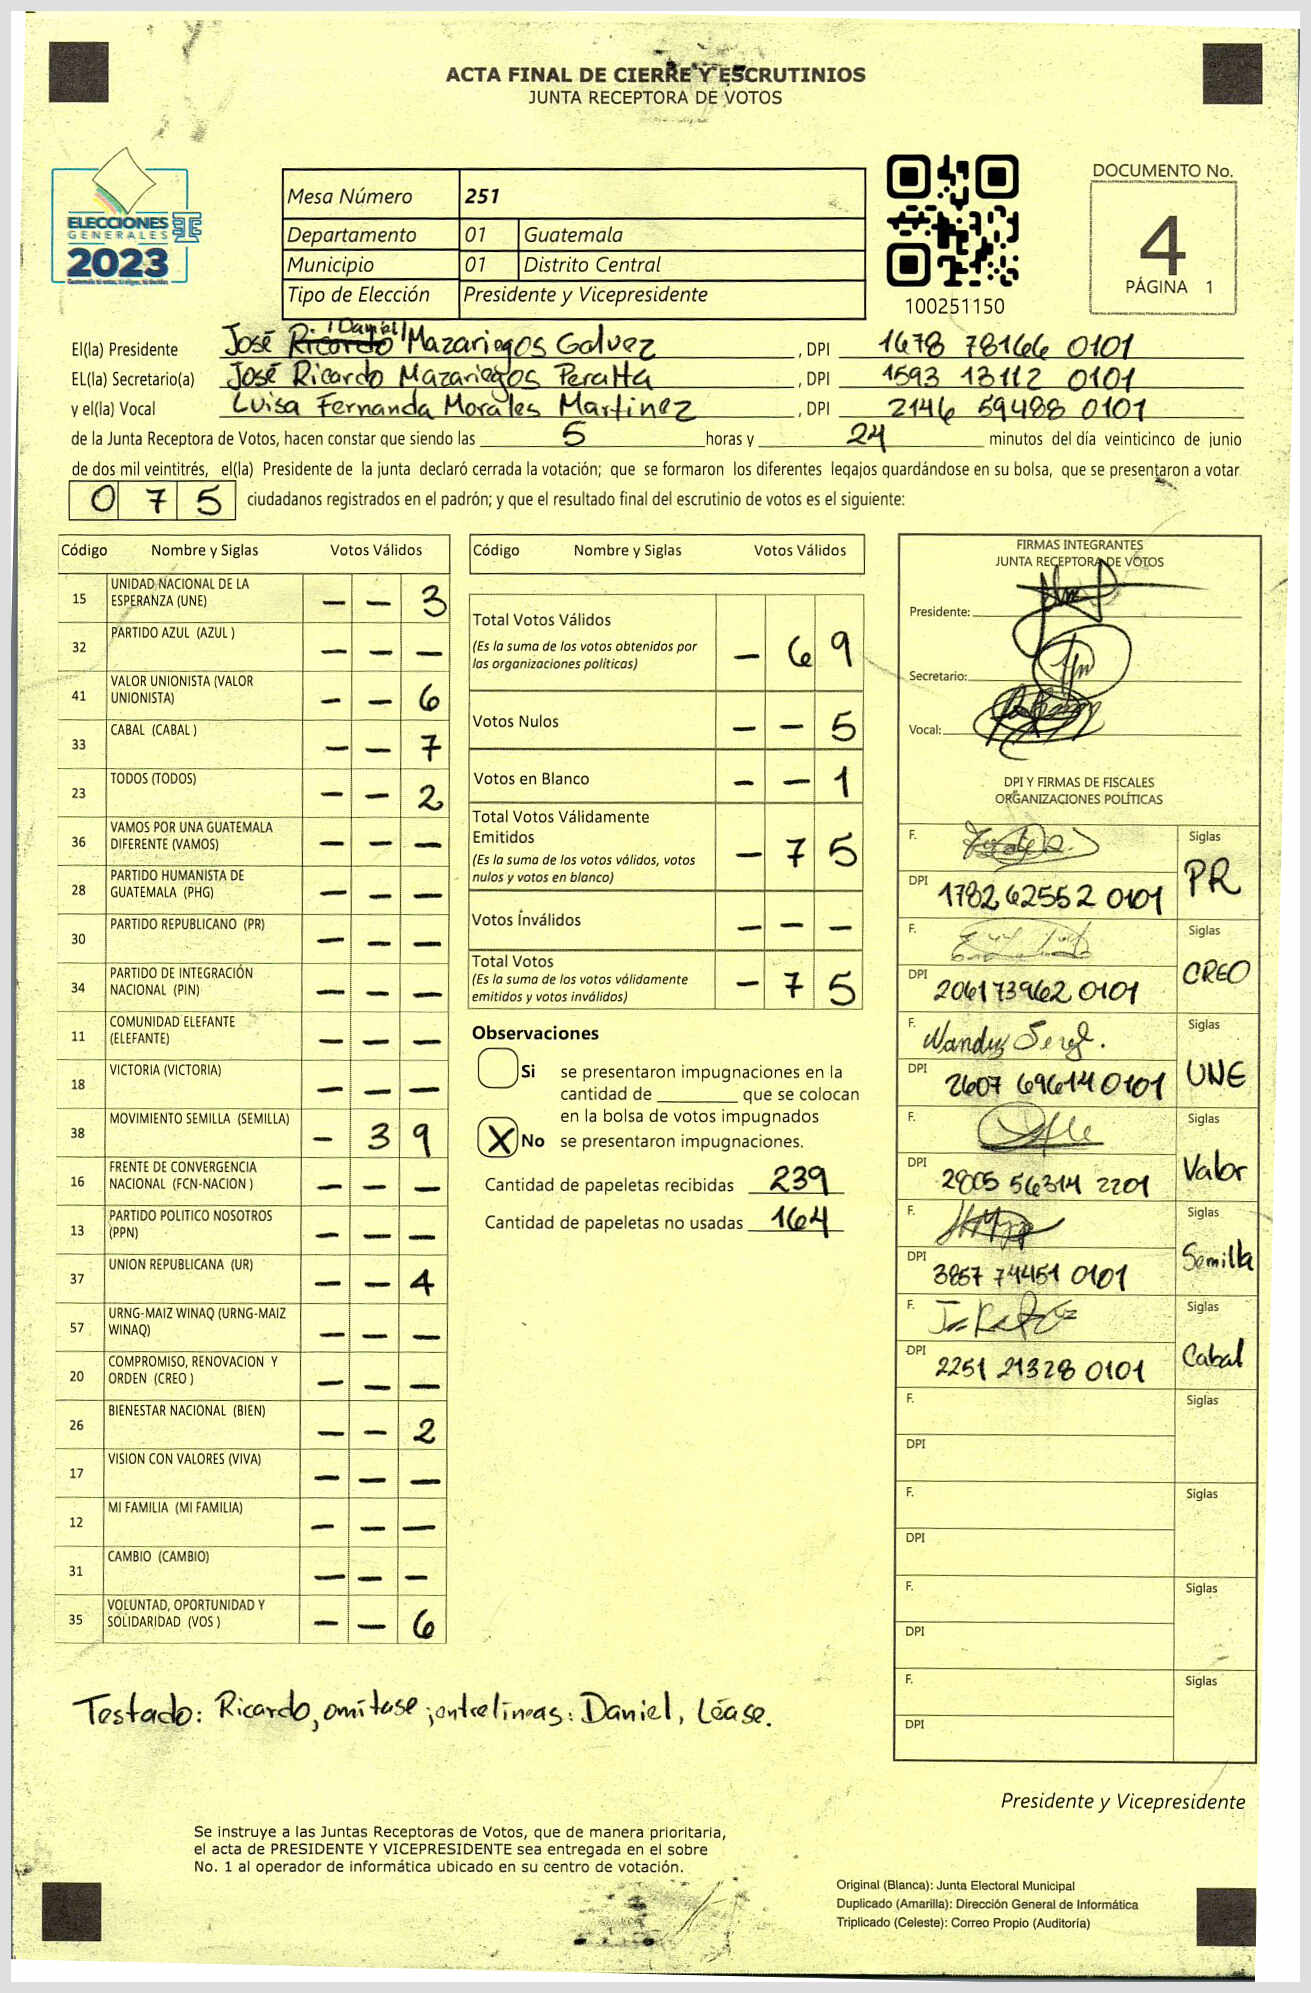 ACTA FINAL DE CIERRE Y ESCRUTINIOS
JUNTA RECEPTORA DE VOTOS
ELECCIONES
GENERALES
2023
Mesa Número 251
Departamento 01 Guatemala
Municipio 01 Distrito Central
Tipo de Elección Presidente y Vicepresidente
100251150
DOCUMENTO No.
4
PÁGINA 1
El(la) Presidente José Ricardo Daniel Mazariegos Galvez, DPI 1678 78166 0101
EL(la) Secretario(a) José Ricardo Mazariegos Peralta, DPI 1593 13112 0101
y el(la) Vocal Luisa Fernanda Morales Martinez, DPI 2146 59488 0101
de la Junta Receptora de Votos, hacen constar que siendo las 5 horas y 24 minutos del día veinticinco de junio
de dos mil veintitrés, el(la) Presidente de la junta declaró cerrada la votación; que se formaron los diferentes legajos guardándose en su bolsa, que se presentaron a votar
0 7 5 ciudadanos registrados en el padrón; y que el resultado final del escrutinio de votos es el siguiente:
Código Nombre y Siglas Votos Válidos
15 UNIDAD NACIONAL DE LA ESPERANZA (UNE) – – 3
32 PARTIDO AZUL (AZUL ) – – –
41 VALOR UNIONISTA (VALOR UNIONISTA) – – 6
33 CABAL (CABAL ) – – 7
23 TODOS (TODOS) – – 2
36 VAMOS POR UNA GUATEMALA DIFERENTE (VAMOS) – – –
28 PARTIDO HUMANISTA DE GUATEMALA (PHG) – – –
30 PARTIDO REPUBLICANO (PR) – – –
34 PARTIDO DE INTEGRACIÓN NACIONAL (PIN) – – –
11 COMUNIDAD ELEFANTE (ELEFANTE) – – –
18 VICTORIA (VICTORIA) – – –
38 MOVIMIENTO SEMILLA (SEMILLA) – 3 9
16 FRENTE DE CONVERGENCIA NACIONAL (FCN-NACION ) – – –
13 PARTIDO POLITICO NOSOTROS (PPN) – – –
37 UNION REPUBLICANA (UR) – – 4
57 URNG-MAIZ WINAQ (URNG-MAIZ WINAQ) – – –
20 COMPROMISO, RENOVACION Y ORDEN (CREO ) – – –
26 BIENESTAR NACIONAL (BIEN) – – 2
17 VISION CON VALORES (VIVA) – – –
12 MI FAMILIA (MI FAMILIA) – – –
31 CAMBIO (CAMBIO) – – –
35 VOLUNTAD, OPORTUNIDAD Y SOLIDARIDAD (VOS ) – – 6
Código Nombre y Siglas Votos Válidos
Total Votos Válidos – 6 9
(Es la suma de los votos obtenidos por
las organizaciones políticas)
Votos Nulos – – 5
Votos en Blanco – – 1
Total Votos Válidamente
Emitidos – 7 5
(Es la suma de los votos válidos, votos
nulos y votos en blanco)
Votos Inválidos – – –
Total Votos – 7 5
(Es la suma de los votos válidamente
emitidos y votos inválidos)
Observaciones
Si se presentaron impugnaciones en la
cantidad de ________ que se colocan
en la bolsa de votos impugnados
X No se presentaron impugnaciones.
Cantidad de papeletas recibidas 239
Cantidad de papeletas no usadas 164
FIRMAS INTEGRANTES
JUNTA RECEPTORA DE VOTOS
Presidente:
Secretario:
Vocal:
DPI Y FIRMAS DE FISCALES
ORGANIZACIONES POLÍTICAS
F. Siglas
DPI 1782 62552 0101 PR
F. Siglas
DPI 2061 73962 0101 CREO
F. Siglas
DPI 2607 69614 0101 UNE
F. Siglas
DPI 2805 56314 2201 Valor
F. Siglas
DPI 3857 74451 0101 Semilla
F. Siglas
DPI 2251 21328 0101 Cabal
F. Siglas
DPI
F. Siglas
DPI
F. Siglas
DPI
F. Siglas
DPI
Testado: Ricardo, omitase ; entrelíneas: Daniel, Léase.
Presidente y Vicepresidente
Se instruye a las Juntas Receptoras de Votos, que de manera prioritaria,
el acta de PRESIDENTE Y VICEPRESIDENTE sea entregada en el sobre
No. 1 al operador de informática ubicado en su centro de votación.
Original (Blanca): Junta Electoral Municipal
Duplicado (Amarilla): Dirección General de Informática
Triplicado (Celeste): Correo Propio (Auditoría)